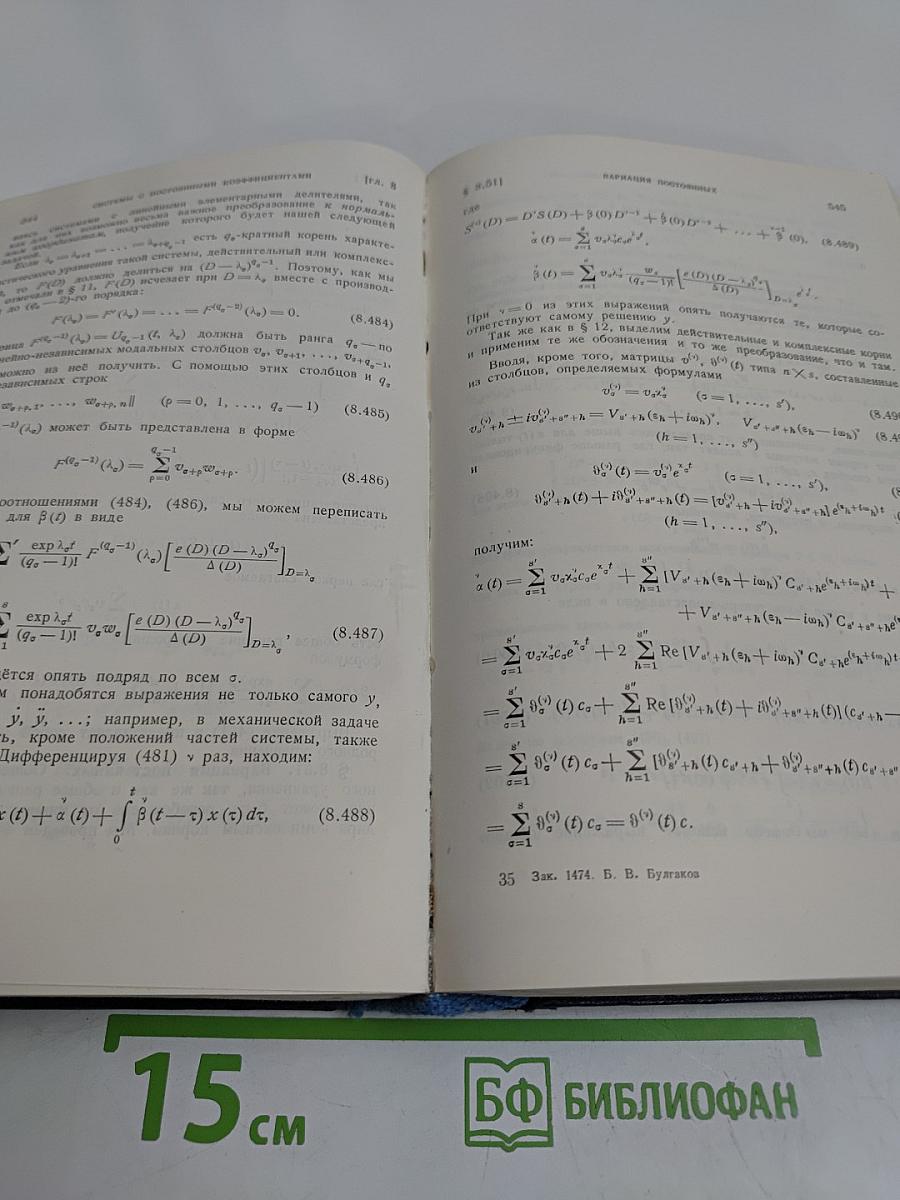 544 СИСТЕМЫ С ПОСТОЯННЫМИ КОЭФФИЦИЕНТАМИ [гл. 8
с линейными элементарными делителями, так
возможно весьма важное преобразование к нормаль-
координатам, получение которого будет нашей следующей
задачей.
Если λσ = λσ+1 = . . . = λσ+qσ−1 есть qσ-кратный корень характе-
ристического уравнения такой системы, действительный или комплекс-
то F(D) должно делиться на (D − λσ)^{qσ−1}. Поэтому, как мы
отмечали в § 11, F(D) исчезает при D = λσ вместе с производ-
до (qσ − 2)-го порядка:
F(λσ) = F′(λσ) = . . . = F^{(qσ−2)}(λσ) = 0. (8.484)
F^{(qσ−1)}(λσ) = U_{qσ−1}(t, λσ) должна быть ранга qσ — по
линейно-независимых модальных столбцов vσ, vσ+1, . . . , vσ+qσ−1,
можно из неё получить. С помощью этих столбцов и qσ
независимых строк
wσ+ρ,1, . . . , wσ+ρ,n‖ (ρ = 0, 1, . . . , qσ − 1) (8.485)
−1)(λσ) может быть представлена в форме
F^{(qσ−1)}(λσ) = ∑_{ρ=0}^{qσ−1} vσ+ρ wσ+ρ. (8.486)
соотношениями (484), (486), мы можем переписать
для β(t) в виде
∑′ exp λσt / (qσ − 1)! F^{(qσ−1)}(λσ) [e(D)(D − λσ)^{qσ} / Δ(D)]_{D=λσ}
∑ exp λσt / (qσ − 1)! vσwσ [e(D)(D − λσ)^{qσ} / Δ(D)]_{D=λσ}, (8.487)
ётся опять подряд по всем σ.
м понадобятся выражения не только самого y,
ẏ, ÿ, ...; например, в механической задаче
ь, кроме положений частей системы, также
Дифференцируя (481) ν раз, находим:
x(t) + α^ν(t) + ∫₀ᵗ β^ν(t − τ) x(τ) dτ, (8.488)
§ 8.51] ВАРИАЦИЯ ПОСТОЯННЫХ 545
где
S^{(ν)}(D) = DʳS(D) + β(0)D^{ν−1} + β̇(0)D^{ν−2} + . . . + β^{ν−1}(0), (8.489)
α^ν(t) = ∑_{σ=1}^{s} vσλσ^ν cσe^{λσt},
β^ν(t) = ∑_{σ=1}^{s} vσλσ^ν wσ / (qσ − 1)! [e(D)(D − λσ)^{qσ} / Δ(D)]_{D=λσ} e^{λσt}.
При ν = 0 из этих выражений опять получаются те, которые со-
ответствуют самому решению y.
Так же как в § 12, выделим действительные и комплексные корни
и применим те же обозначения и то же преобразование, что и там.
Вводя, кроме того, матрицы v^{(ν)}, ϑ^{(ν)}(t) типа n × s, составленные
из столбцов, определяемых формулами
vσ^{(ν)} = vσϰσ^ν (σ = 1, . . . , s′),
v^{(ν)}_{s′+h} ± iv^{(ν)}_{s′+s″+h} = V_{s′+h}(εh + iωh)^ν, V_{s′+s″+h}(εh − iωh)^ν
(h = 1, . . . , s″)
и
ϑσ^{(ν)}(t) = vσ^{(ν)}e^{ϰσt} (σ = 1, . . . , s′),
ϑ^{(ν)}_{s′+h}(t) + iϑ^{(ν)}_{s′+s″+h}(t) = [v^{(ν)}_{s′+h} + iv^{(ν)}_{s′+s″+h}] e^{(εh+iωh)t}
(h = 1, . . . , s″),
получим:
α^ν(t) = ∑_{σ=1}^{s′} vσϰσ^ν cσe^{ϰσt} + ∑_{h=1}^{s″} [V_{s′+h}(εh + iωh)^ν C_{s′+h}e^{(εh+iωh)t} +
+ V_{s′+s″+h}(εh − iωh)^ν C_{s′+s″+h}e
= ∑_{σ=1}^{s′} vσϰσ^ν cσe^{ϰσt} + 2 ∑_{h=1}^{s″} Re [V_{s′+h}(εh + iωh)^ν C_{s′+h}e^{(εh+iωh)t}
= ∑_{σ=1}^{s′} ϑσ^{(ν)}(t) cσ + ∑_{h=1}^{s″} Re [ϑ^{(ν)}_{s′+h}(t) + iϑ^{(ν)}_{s′+s″+h}(t)] (c_{s′+h} −
= ∑_{σ=1}^{s′} ϑσ^{(ν)}(t) cσ + ∑_{h=1}^{s″} [ϑ^{(ν)}_{s′+h}(t) c_{s′+h} + ϑ^{(ν)}_{s′+s″+h}(t) c_{s′+s″
= ∑_{σ=1}^{s} ϑσ^{(ν)}(t) cσ = ϑ^{(ν)}(t) c.
35 Зак. 1474. Б. В. Булгаков
15 см
БФ БИБЛИОФАН